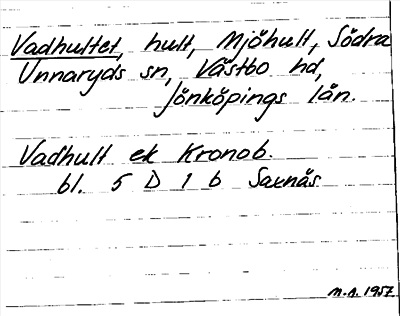 Vadhultet, hult, Mjöhult, Södra
Unnaryds sn, Västbo hd,
Jönköpings län.
Vadhult ek Kronob.
bl. 5 D 1 b Saxnäs
M.A. 1957